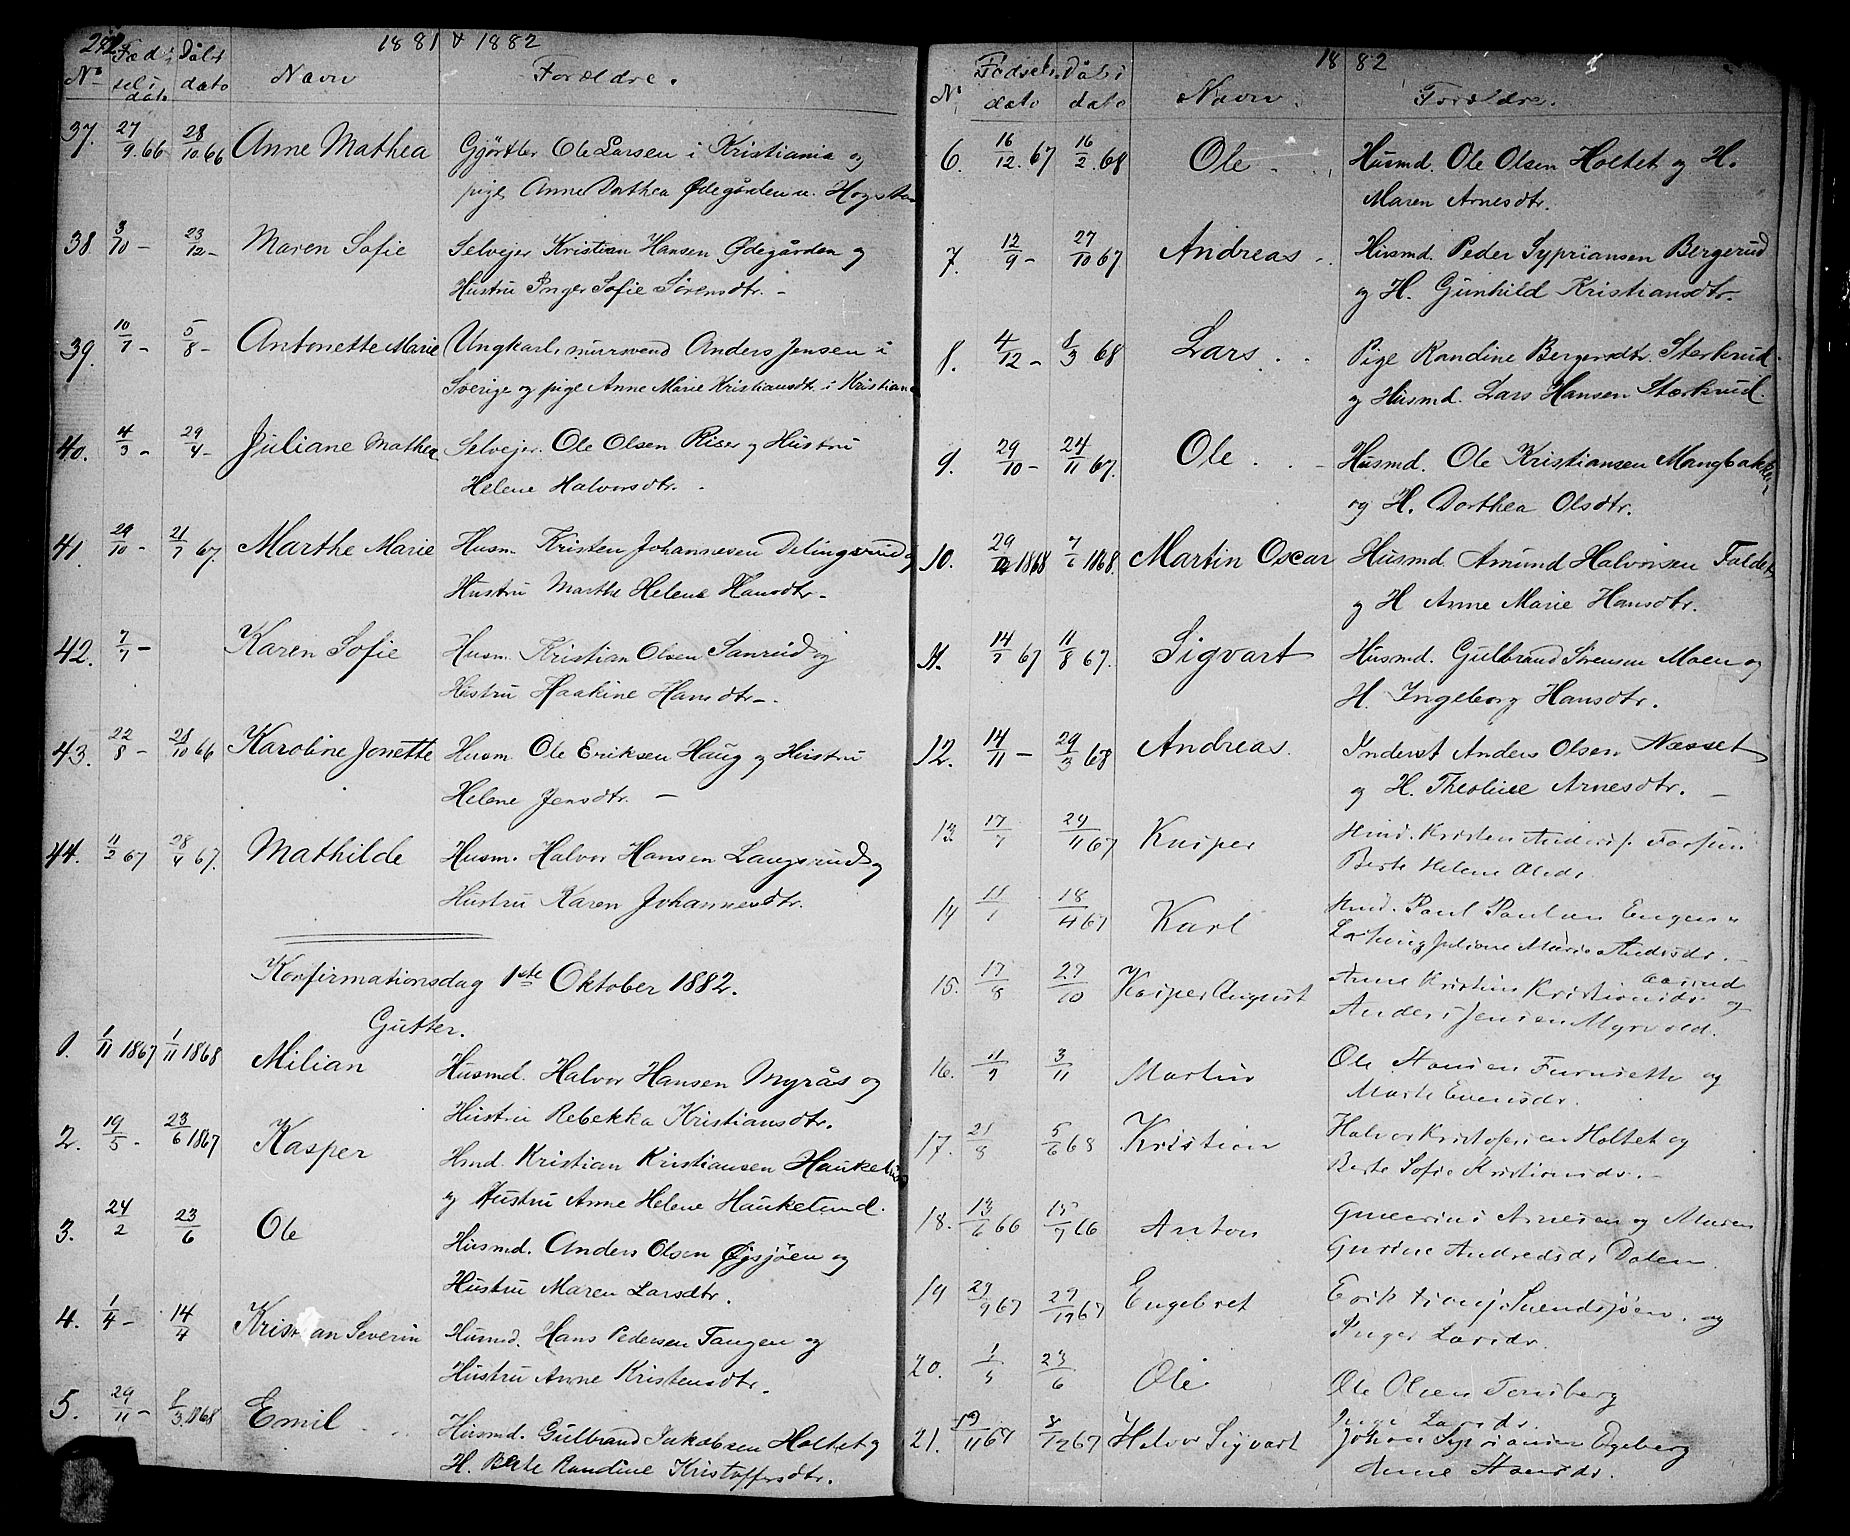 242.
1881 & 1882
No Fødselsdato Dåbsdato Navn Forældre.
37. 27/9.66 28/10 66 Anne Mathea Gjørtler Ole Larsen i Kristiania og
pige Anne Dorthea Ødegården u. Hogstad
38. 3/10 - 23/12 - Maren Sofie Selvejer Kristian Hansen Ødegården og
Hustru Inger Sofie Sørensdtr. -
39. 10/7 - 5/8 - Antonette Marie Ungkarl, mursvend Anders Jensen i
Sverige og pige Anne Marie Kristiansdtr. i Kristiania
40. 4/3 - 29/4 - Juliane Mathea Selvejer. Ole Olsen Riser og Hustru
Helene Halvorsdtr. -
41. 29/10 - 21/7 67. Marthe Marie Husm. Kristen Johannesen Delingsrud og
Hustru Marthe Helene Hansdtr. -
42. 7/7 - Karen Sofie Husm. Kristian Olsen Sanrud og
Hustru Haakine Hansdtr -.
43. 22/8 - 28/10 66 Karoline Jonette Husm. Ole Eriksen Haug og Hustru
Helene Jensdtr. -
44. 11/2 67 28/4 67. Mathilde Husm. Halvor Hansen Langsrud og
Hustru Karen Johannesdtr.
Konfirmationsdag 1ste Oktober 1882.
Gutter.
1. 1/11 1867 1/11 1868 Milian Husmd. Halvor Hansen Myrås og
Hustru Rebekka Kristiansdtr.
2. 19/5 - 23/6 1867 Kasper Hmd. Kristian Kristiansen Haukelund
og Hustru Anne Helene Haukelund.
3. 24/2 23/6 Ole Husmd. Anders Olsen Øgsjøen og
Hustru Maren Larsdtr.
4. 1/4 - 14/4 Kristian Severin Husmd. Hans Pedersen Tangen og
Hustru Anne Kristensdtr.
5. 29/11 - 8/3 1868 Emil Husmd. Gulbrand Jakobsen Holtet og
H. Berte Randine Kristoffersdtr.
1882
No Fødselsdato Dåbsdato Navn. Forældre.
6. 16/12. 67 16/2. 68 Ole Husmd. Ole Olsen Holtet og H.
Maren Arnesdtr.
7. 12/9 - 27/10 67 Andreas Husmd. Peder Sypriansen Bergerud
og H. Gunhild Kristiansdtr.
8. 4/12 - 8/3 68 Lars Pige Randine Bergersdtr. Sterkrud
og Husmd. Lars Hansen Sterkrud.
9. 29/10 - 24/11 67. Ole Husmd. Ole Kristiansen Mangbakken
og H. Dorthea Olsdtr.
10. 29/12 1868 7/6 1868. Martin Oscar Husmd. Amund Halvorsen Faldet
og H Anne Marie Hansdtr.
11. 14/7 67 11/8 67. Sigvart Husmd. Gulbrand Sørensen Moen og
H. Ingeborg Hansdtr.
12. 14/11 - 29/3 68 Andreas. Inderst Anders Olsen Næsset
og H. Theoline Arnesdtr. -
13. 17/7 29/11 67 Kasper Hmd. Kristen Anders.
Berte Helene Olsdr
14 11/1 18/4 67 Karl Hmd. Paul Paulsen Engen
Juliane Marie Andersdr. -
15. 17/8 27/10 Kasper August Anne Kristine Kristiansdr. Aasrud og
Anders Jensen Myrvold.
16. 11/9 3/11 Martin Ole Hansen Furusette og
Marte Evensdr.
17. 21/8 5/6 68 Kristian Halvor Kristofersen Holtet og
Berte Sofie Kristiansdr. -
18. 13/6 66 15/7 66 Anton Arnesen og Maren
Gurine Andredsdr Dalen
19 29/9 67 27/12 67 Engebret Erik Svendsjøen. og
Inger Larsdr
20. 1/5 23/6 Ole Ole Olsen Tonsberg
Inge Larsdr.
21. 19/11 67 8/12 67 Halvor Sigvart Johan Syprianen Engeberg
Anne Hansdr.